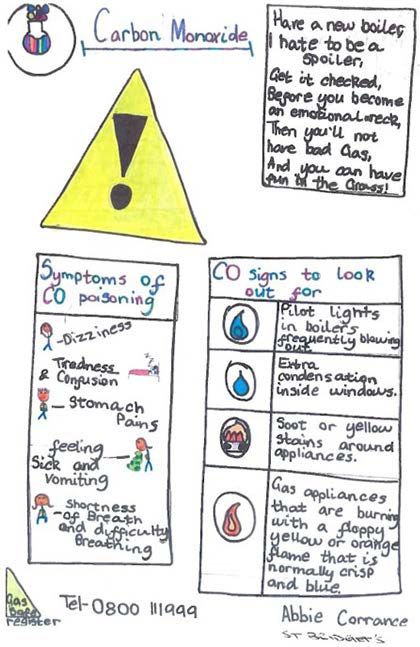 Carbon Monoxide
Have a new boiler,
I hate to be a
spoiler,
Get it checked,
Before you become
an emotional wreck,
Then you'll not
have bad Gas,
And you can have
fun in the Grass!
Symptoms of
CO poisoning
-Dizziness
Tiredness
& Confusion
- Stomach
Pains
feeling
Sick and
Vomiting
- Shortness
of Breath
and difficulty
Breathing
CO signs to look
out for
Pilot lights
in boilers
frequently blowing
out
Extra
condensation
inside windows.
Soot or yellow
stains around
appliances.
Gas appliances
that are burning
with a floppy
yellow or orange
flame that is
normally crisp
and blue.
Gas
safe
register
Tel-0800 111999
Abbie Corrance
ST Bridget's